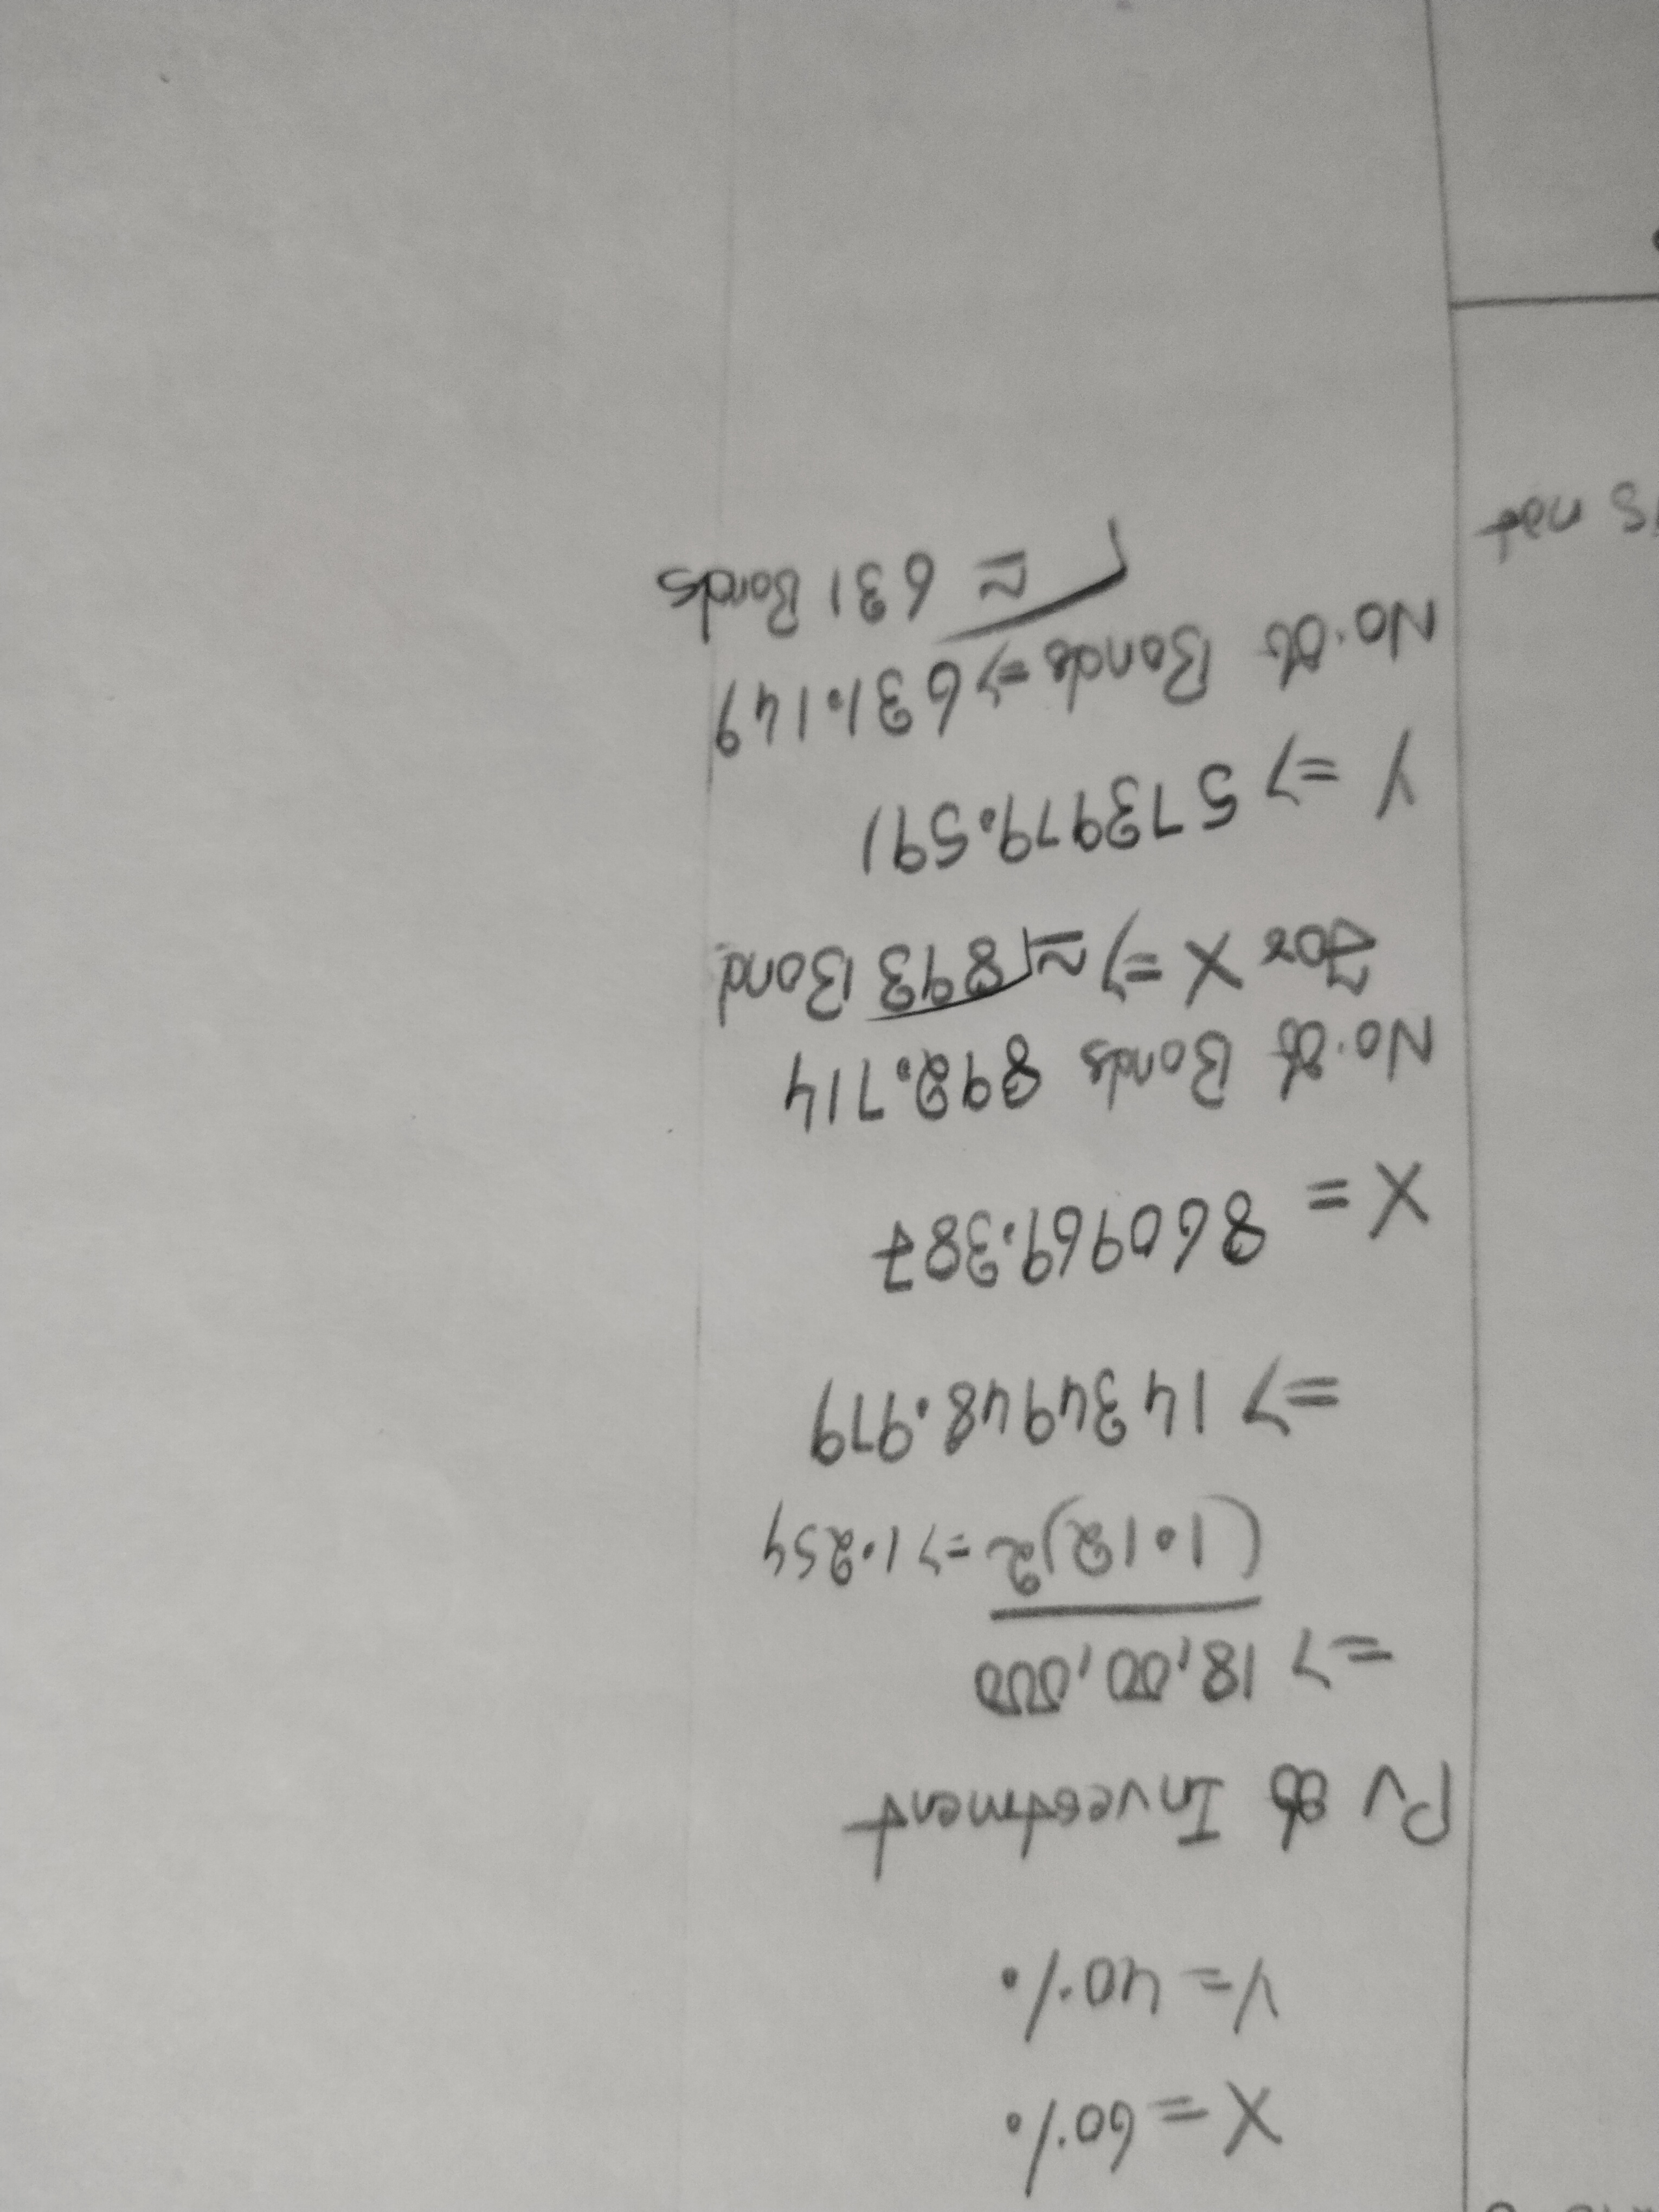 X = 60%
Y = 40%
Pv of Investment
=> 18,00,000
(1.12)2 => 1.254
=> 1434948.979
X = 860969.387
No. of Bonds 892.714
For X => ≈ 893 Bond
Y => 573979.591
No. of Bonds => 631.149
≈ 631 Bonds
is not